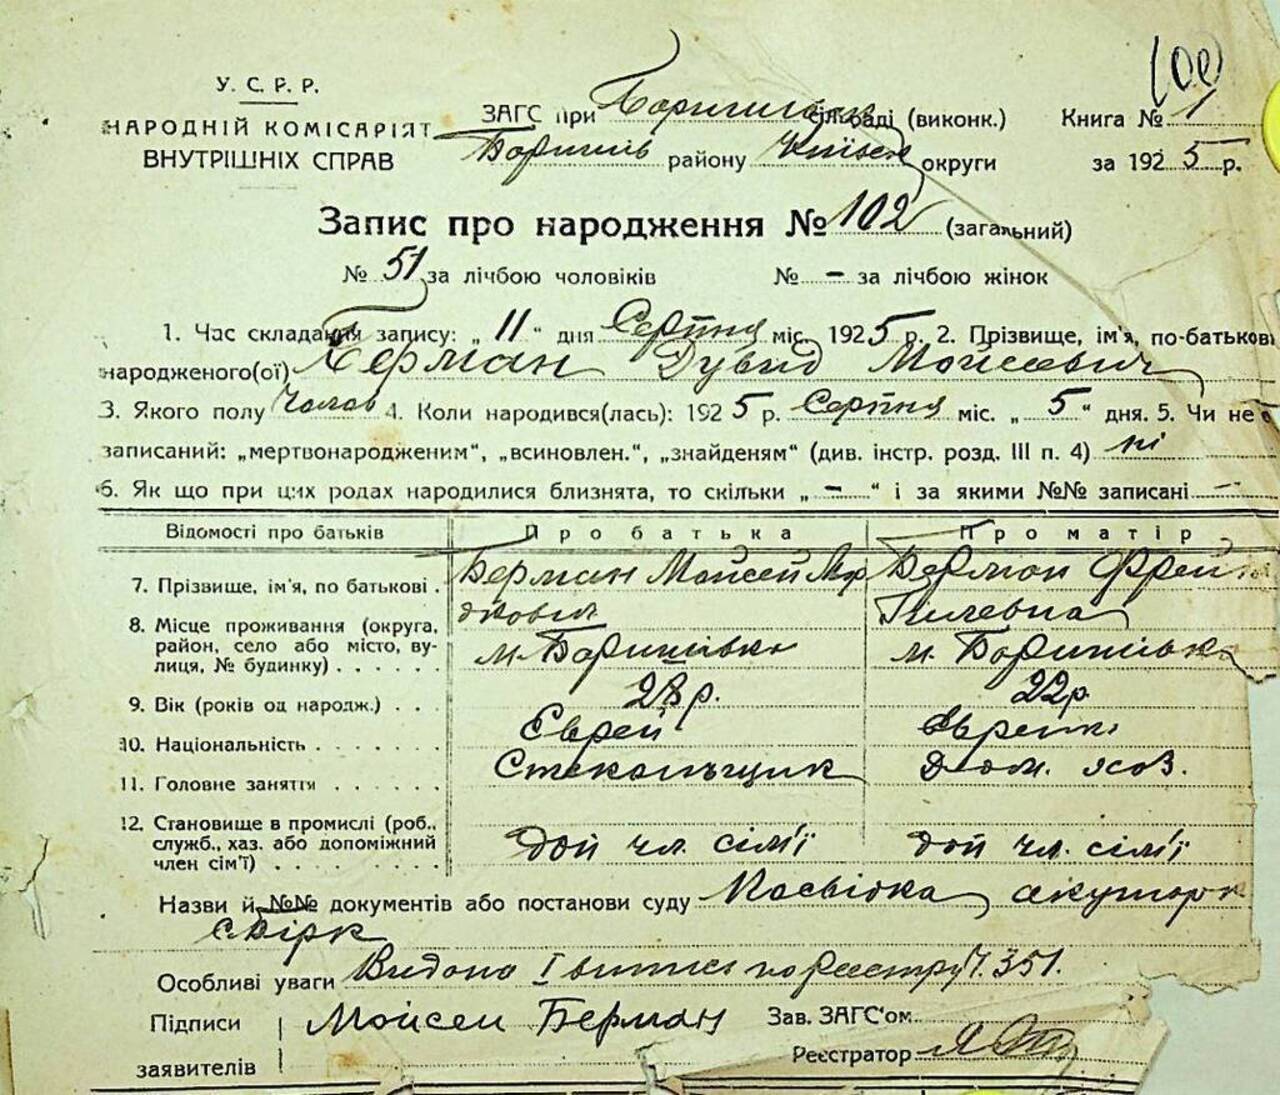 100
У. С. Р. Р.
НАРОДНІЙ КОМІСАРІЯТ
ВНУТРІШНІХ СПРАВ
ЗАГС при сільраді (виконк.) Книга № 1
району округи за 1925 р.
Запис про народження № 102 (загальний)
№ 51 за лічбою чоловіків № – за лічбою жінок
1. Час складання запису: „11“ дня Серпня міс. 1925 р. 2. Прізвище, ім'я, по-батькові
народженого(ої) Берман Дувид Мойсеевич
3. Якого полу Чолов 4. Коли народився(лась): 1925 р. Серпня міс. „5“ дня. 5. Чи не є
записаний: „мертвонародженим“, „всиновлен.“, „знайденям“ (див. інстр. розд. III п. 4) ні
6. Як що при цих родах народилися близнята, то скільки „–“ і за якими №№ записані –
Відомості про батьків Про батька Про матір
7. Прізвище, ім'я, по батькові . Берман Мойсей Мор Берман Фрейда
дкович
8. Місце проживання (округа,
район, село або місто, ву-
лиця, № будинку) . . . . . м. Боришівка м. Боришівка
9. Вік (років од народж.) . . . 28 р. 22 р.
10. Національність . . . . . . . Єврей Єврейка
11. Головне заняття . . . . . . Стекольщик Дом. хоз.
12. Становище в промислі (роб.,
служб., хаз. або допоміжний
член сім'ї) . . . . . . . . . дой чл. сім'ї дой чл. сім'ї
Назви й №№ документів або постанови суду Посвідка акушорк
Особливі уваги Видана I випис по Реєстру Ч. 351.
Підписи Мойсей Берман Зав. ЗАГС'ом
заявителів Реєстратор